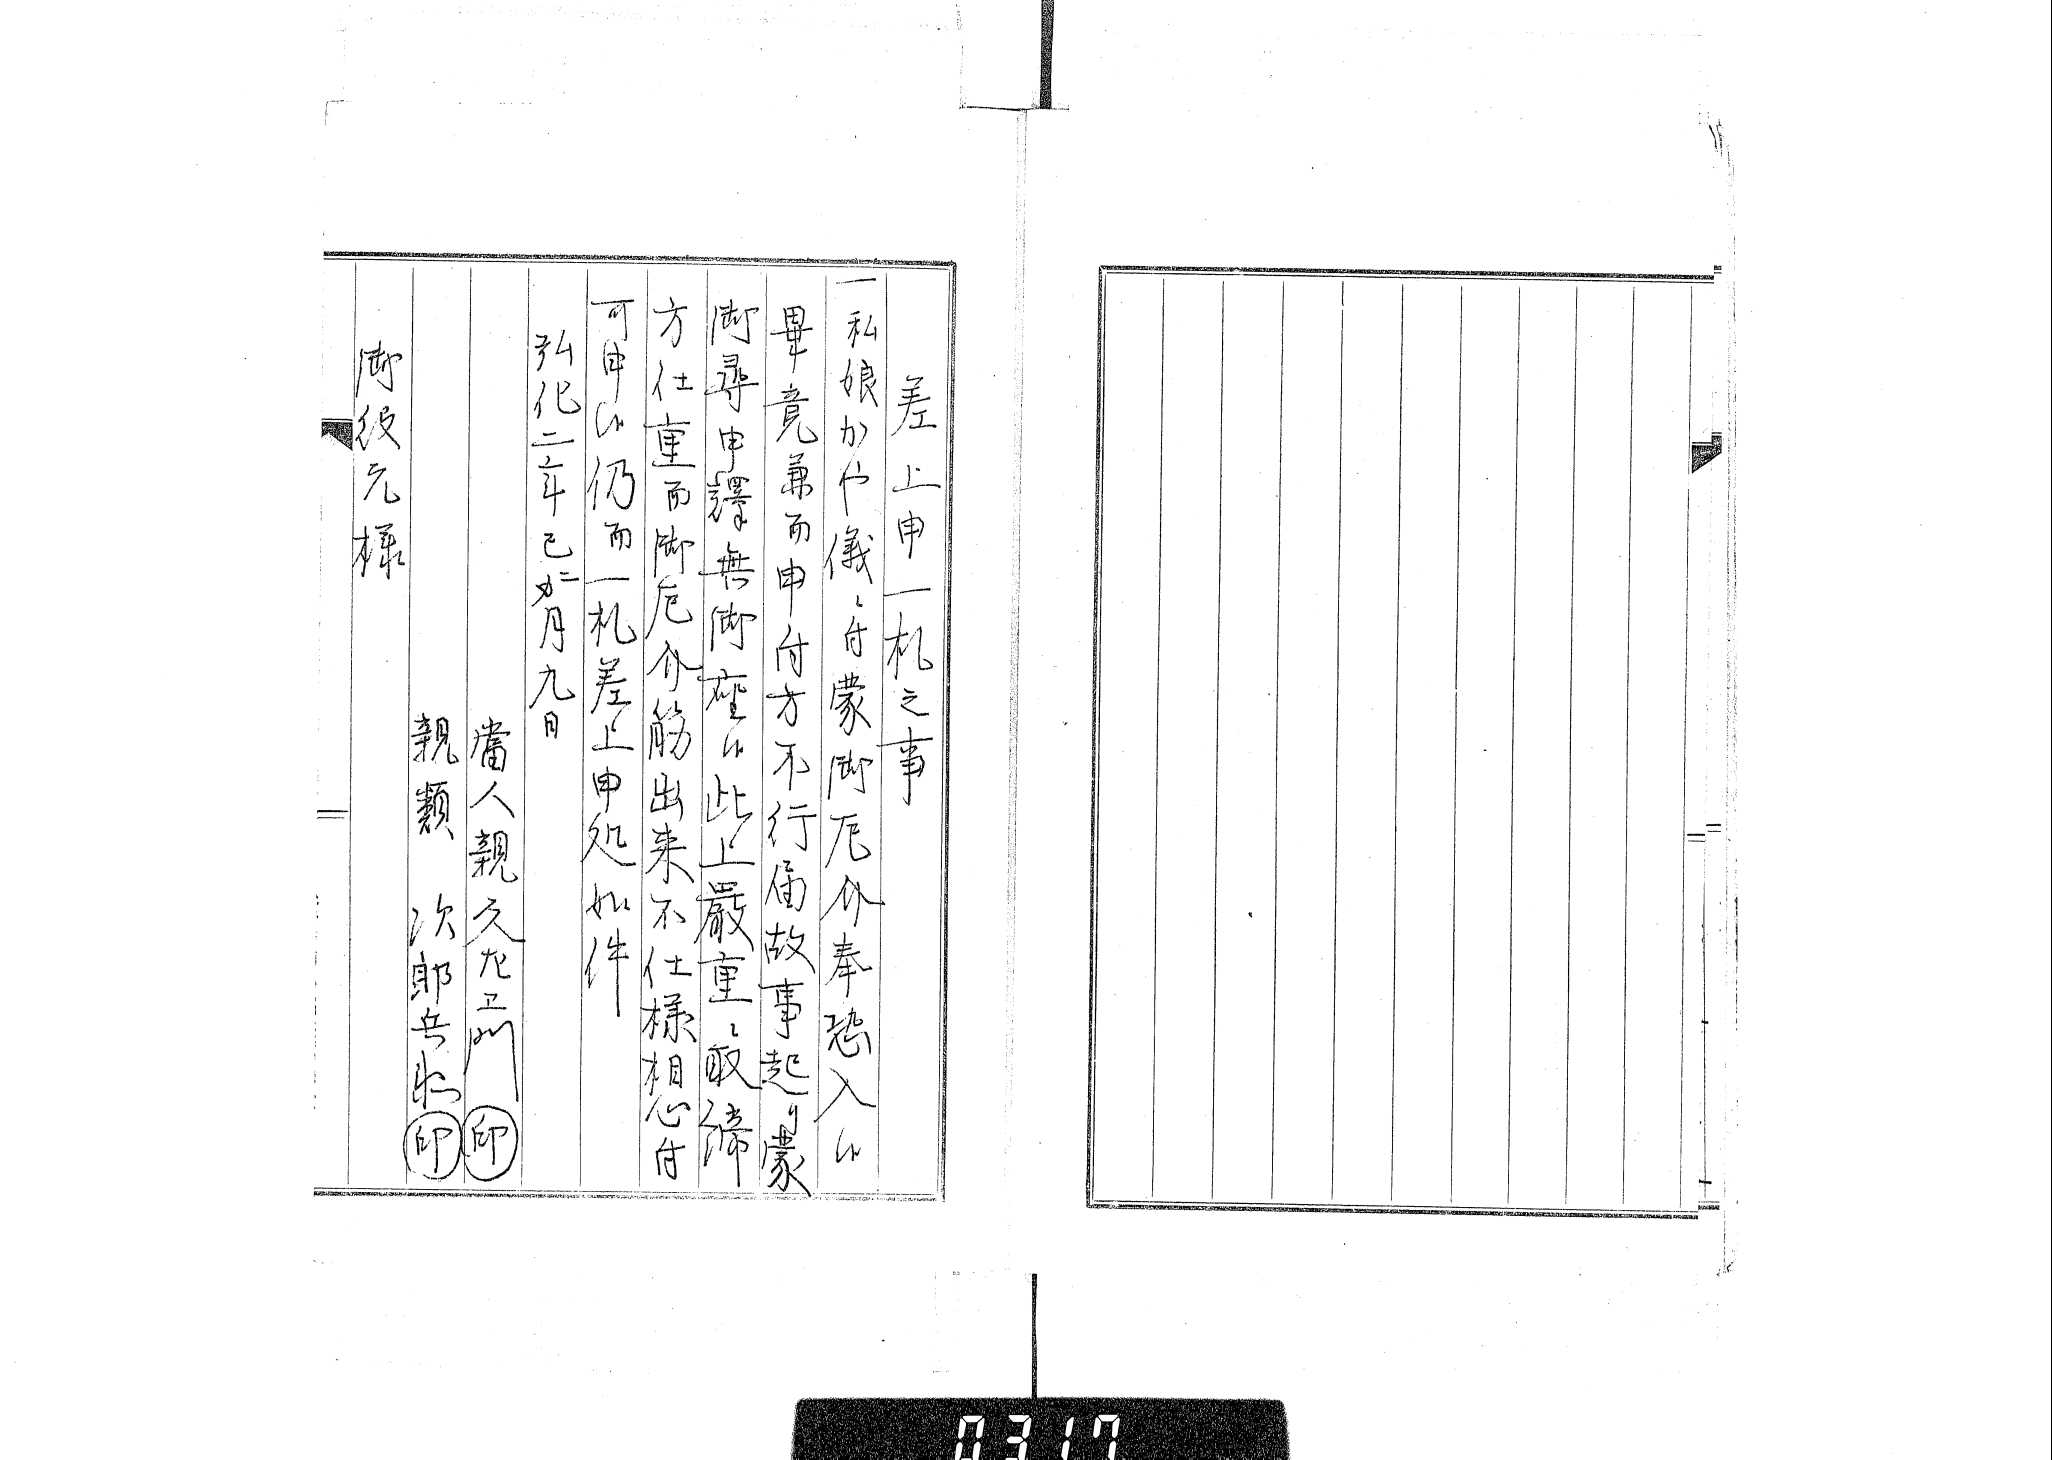 差上申一札之事
一私娘かや儀ニ付蒙御厄介奉恐入候
畢竟兼而申付方不行届故事起り蒙
御尋申譯無御座候此上嚴重ニ取締
方仕重而御厄介筋出来不仕様想心付
可申候仍而一札差上申処如件
弘化二年巳二月九日
當人親久左衛門㊞
親類 次郎兵衛㊞
御役元様
0317